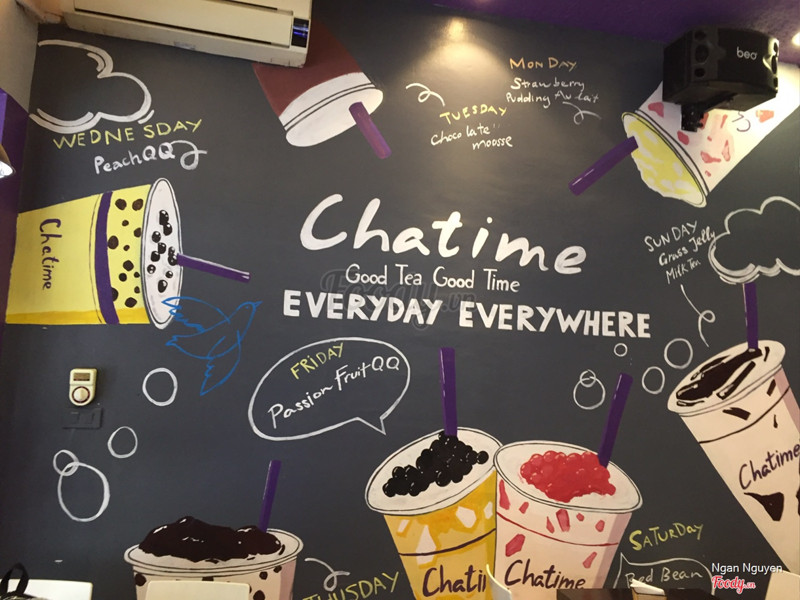 MONDAY
Strawberry
Pudding Au Lait
TUESDAY
Chocolate
mousse
WEDNESDAY
Peach QQ
Chatime
Chatime
Good Tea Good Time
EVERYDAY EVERYWHERE
SUNDAY
Grass Jelly
Milk Tea
FRIDAY
Passion Fruit QQ
Chatime
Chati
Chatime
THUSDAY
SATURDAY
Red Bean
beo
Foody.vn
Ngan Nguyen
Foody.vn